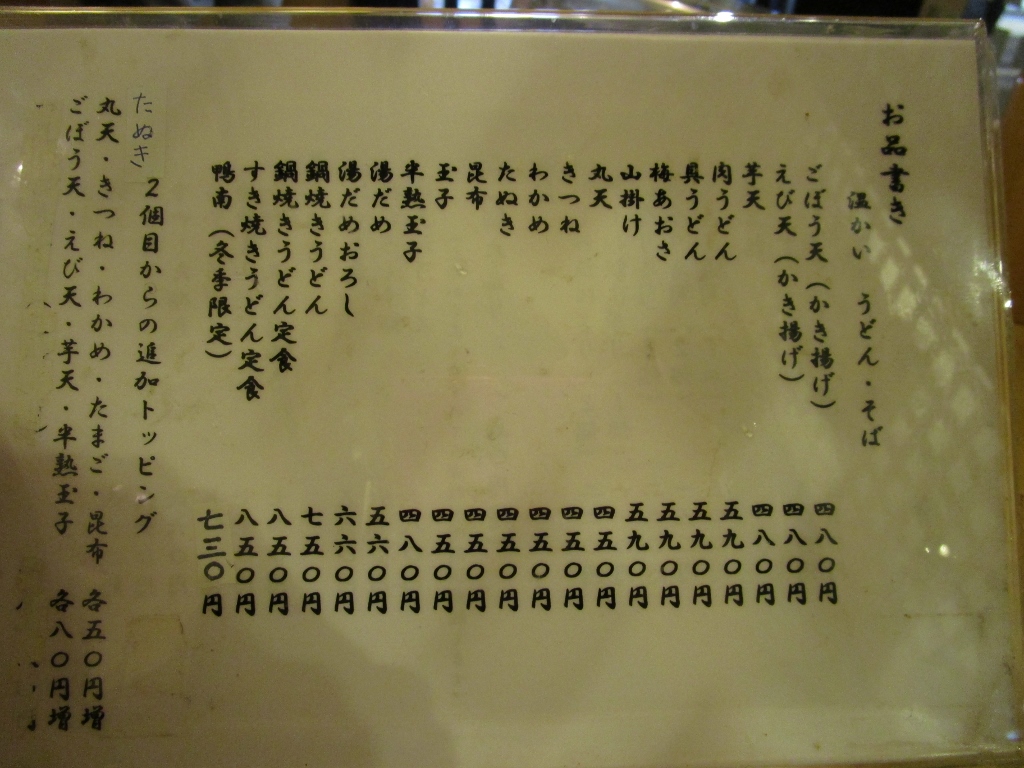 お品書き
温かい うどん・そば
ごぼう天（かき揚げ） 四八〇円
えび天（かき揚げ） 四八〇円
芋天 四八〇円
肉うどん 五九〇円
具うどん 五九〇円
梅あおさ 五九〇円
山掛け 五九〇円
丸天 四五〇円
きつね 四五〇円
わかめ 四五〇円
たぬき 四五〇円
昆布 四五〇円
玉子 四五〇円
半熟玉子 四八〇円
湯だめ 五六〇円
湯だめおろし 六六〇円
鍋焼きうどん 七五〇円
鍋焼きうどん定食 八五〇円
すき焼きうどん定食 八五〇円
鴨南（冬季限定） 七三〇円
２個目からの追加トッピング
たぬき
丸天・きつね・わかめ・たまご・昆布 各五〇円増
ごぼう天・えび天・芋天・半熟玉子 各八〇円増